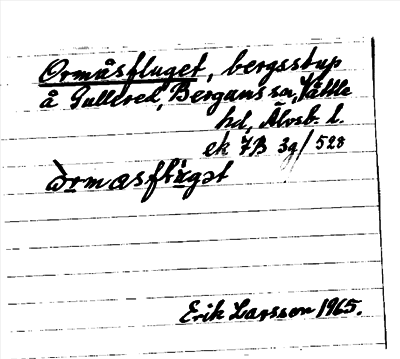 Ormåsfluget, bergsstup
å Gullered, Bergums sn, Vättle
hd, Älvsb. l.
ek 7B 3g/528
òrmasflùgət
Erik Larsson 1965.